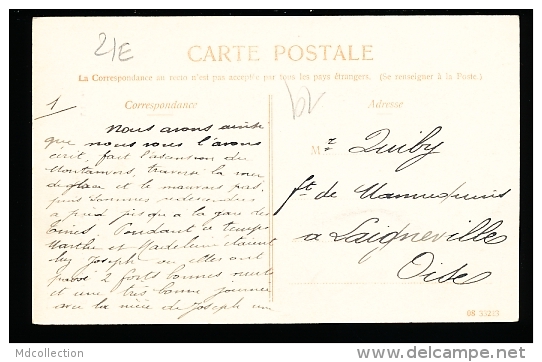 2/E
CARTE POSTALE
La Correspondance au recto n'est pas acceptée par tous les pays étrangers. (Se renseigner à la Poste.)
1
Correspondance
Adresse
Nous avons ainsi
que nous vous l'avons
écrit, fait l'ascension du
Montanvers, traversé la mer
de glace et le mauvais pas,
puis sommes redescendus
à pied jusqu'à la gare des
Tines. Pendant ce temps
Marthe et Madeleine étaient
chez Joseph ou elles ont
passé 2 forts bonnes nuits
et une très bonne journée
avec la nièce de Joseph
Mr Quiby
ft de
a Laigneville
Oise
08 33283
Mdcollection
http://www.delcampe.net